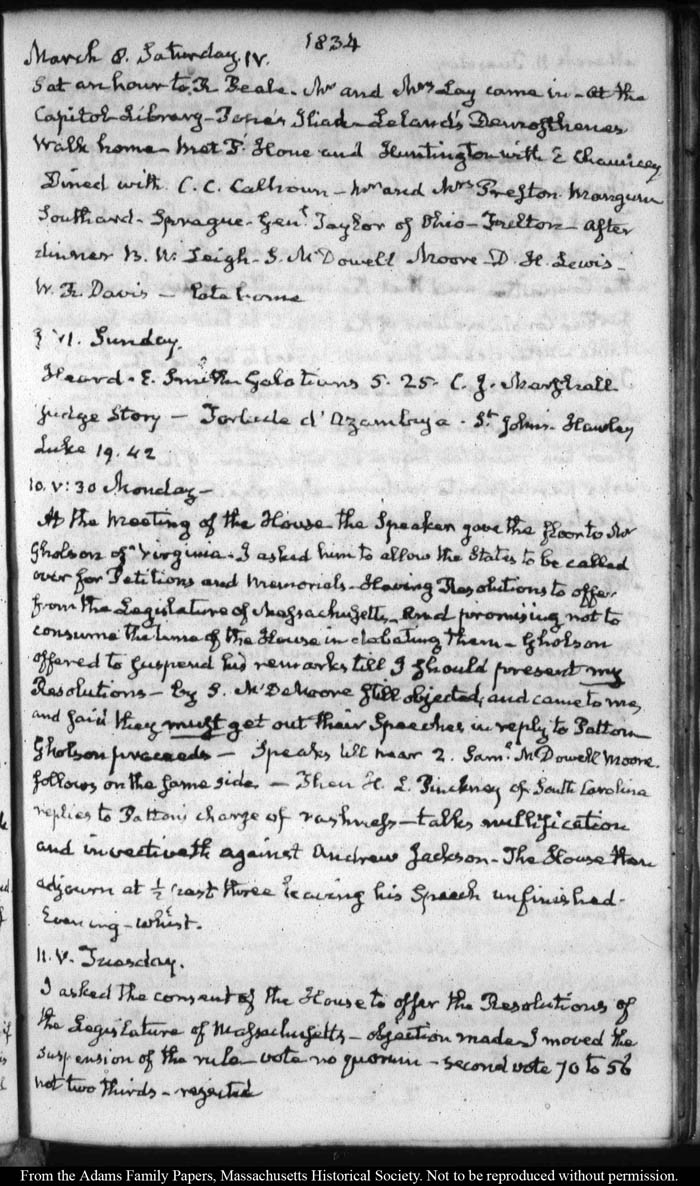 1834
March 8. Saturday. IV.
Sat an hour to F. Beale. Mr and Mrs Lay came in - At the
Capitol Library - Pope's Iliad - Leland's Demosthenes
Walk home - Met P. Hone and Huntington with E Chauncey
Dined with C. C. Calhoun - Mr and Mrs Preston. Mangum
Southard - Sprague - Genl Taylor of Ohio - Fulton - After
dinner B. W. Leigh - S. McDowell Moore D. H. Lewis -
W. R. Davis - Late home
VI. Sunday.
Heard - E. Smith Galatians 5. 25. C. J. Marshall
Judge Story - Torlade d'Azambuja. St Johns. Hawley
Luke 19. 42
10. V:30 Monday -
At the meeting of the House the Speaker gave the floor to Mr
Gholson of Virginia. I asked him to allow the States to be called
over for Petitions and Memorials - Having Resolutions to offer
from the Legislature of Massachusetts, and promising not to
consume the time of the House in debating them - Gholson
offered to suspend his remarks till I should present my
Resolutions - S. McD Moore still objected, and came to me,
and said they must get out their Speeches in reply to Patton
Gholson proceeds - Speaks till near 2. Saml McDowell Moore.
follows on the same side - Then H. L. Pinckney of South Carolina
replies to Patton's charge of rashness - talks nullification
and invectiveth against Andrew Jackson - The House then
adjourn at ½ past three leaving his Speech unfinished -
Evening - whist.
11. V. Tuesday.
I asked the consent of the House to offer the Resolutions of
the Legislature of Massachusetts - objection made I moved the
suspension of the rule - vote no quorum - second vote 70 to 56
not two thirds - rejected
From the Adams Family Papers, Massachusetts Historical Society. Not to be reproduced without permission.